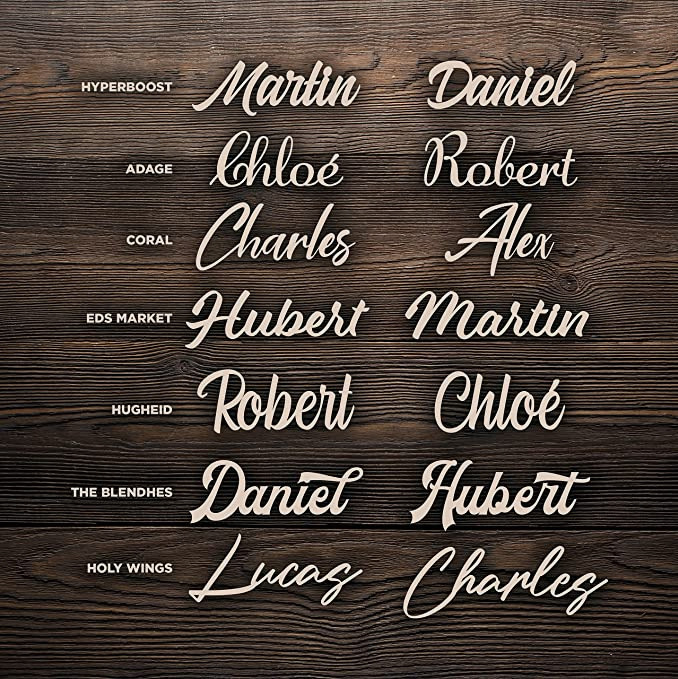 HYPERBOOST Martin Daniel
ADAGE Chloé Robert
CORAL Charles Alex
EDS MARKET Hubert Martin
HUGHEID Robert Chloé
THE BLENDHES Daniel Hubert
HOLY WINGS Lucas Charles